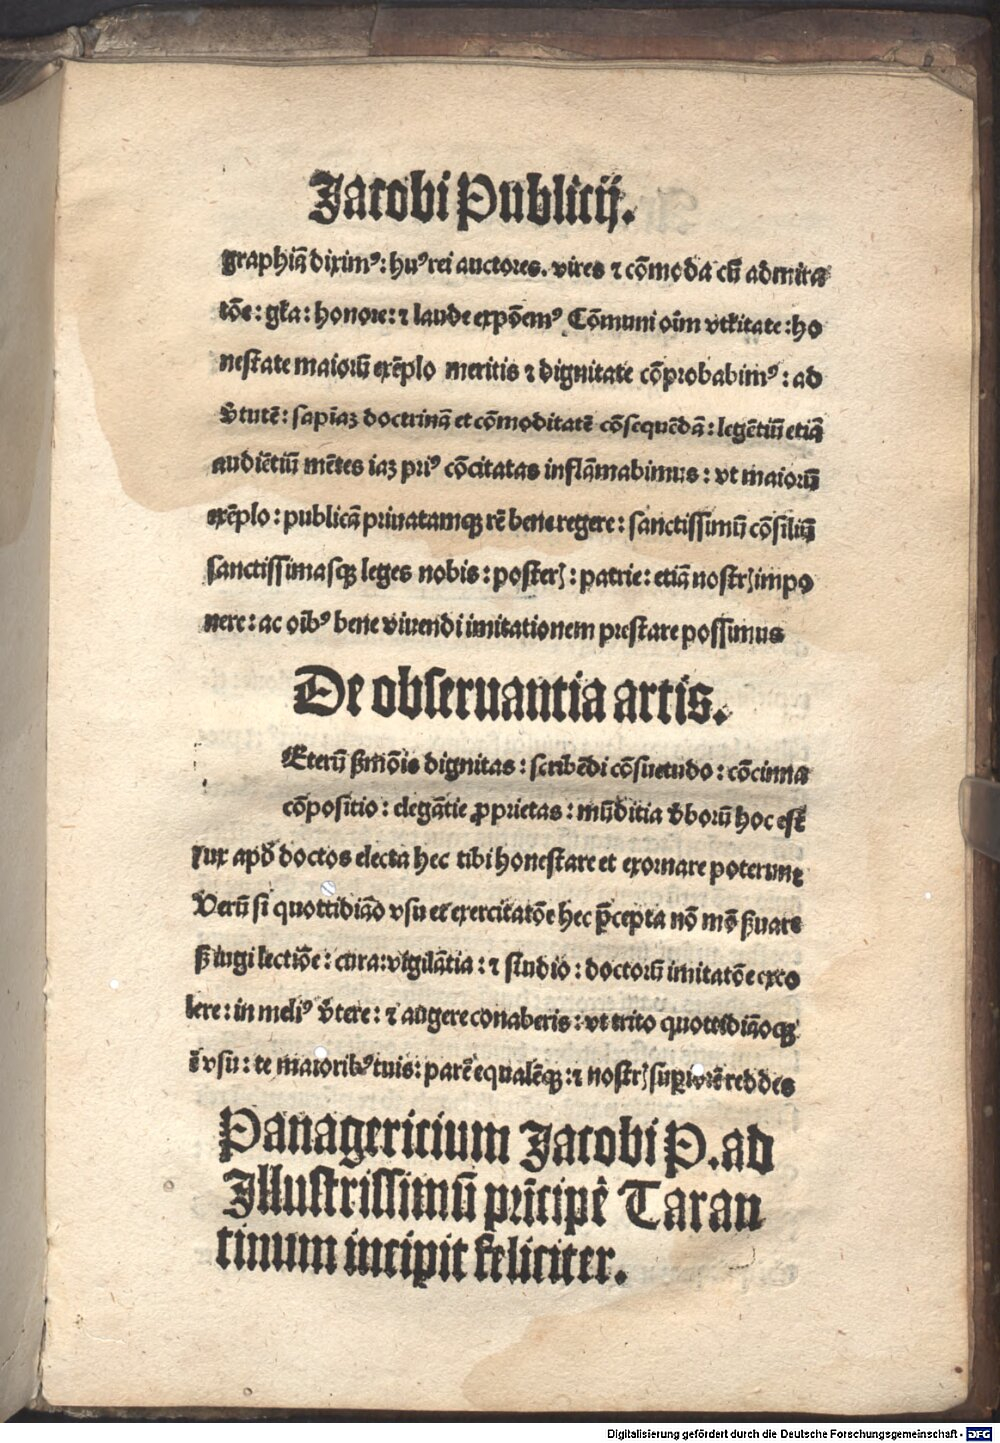 Jacobi Publicij.
graphiā diximꝰ: huꝰ rei auctores. vires ⁊ cōmoda cū admira
tōe: gr̄a: honore: ⁊ laude expōemꝰ Cōmuni oīm vtilitate: ho
nestate maiorū exēplo meritis ⁊ dignitate cōprobabimꝰ: ad
v̄tutē: sapiāꝫ doctrinā et cōmoditatē cōsequēdā: legētiū etiā
audiētiū mētes iaꝫ priꝰ cōcitatas inflāmabimus: vt maiorū
exēplo: publicā priuatamqꝫ rē bene regere: sanctissimū cōsiliū
sanctissimasqꝫ leges nobis: posterꝭ: patrie: etiā nostrꝭ impo
nere: ac oībꝰ bene viuendi imitationem prestare possimus
De obseruantia artis.
Eterū ẜmōis dignitas: scribēdi cōsuetudo: cōcinna
cōpositio: elegātie ꝓprietas: mūditia v̄borū hoc est
apd̄ doctos electa hec tibi honestare et exornare poterunt
Verū si quottidiāo vsu et exercitatōe hec p̄cepta nō mō ẜuare
ẜ iugi lectiōe: cura: vigilātia: ⁊ studio: doctorū imitatōe exco
lere: in meliꝰ v̄tere: ⁊ augere conaberis: vt trito quottidiāoqꝫ
ē vsu: te maioribꝰ tuis: parē equalēqꝫ: ⁊ nostrꝭ suꝑiorē reddes
Panagericium Jacobi P. ad
Illustrissimū prīcipē Taran
tinum incipit feliciter.
Digitalisierung gefördert durch die Deutsche Forschungsgemeinschaft - DFG